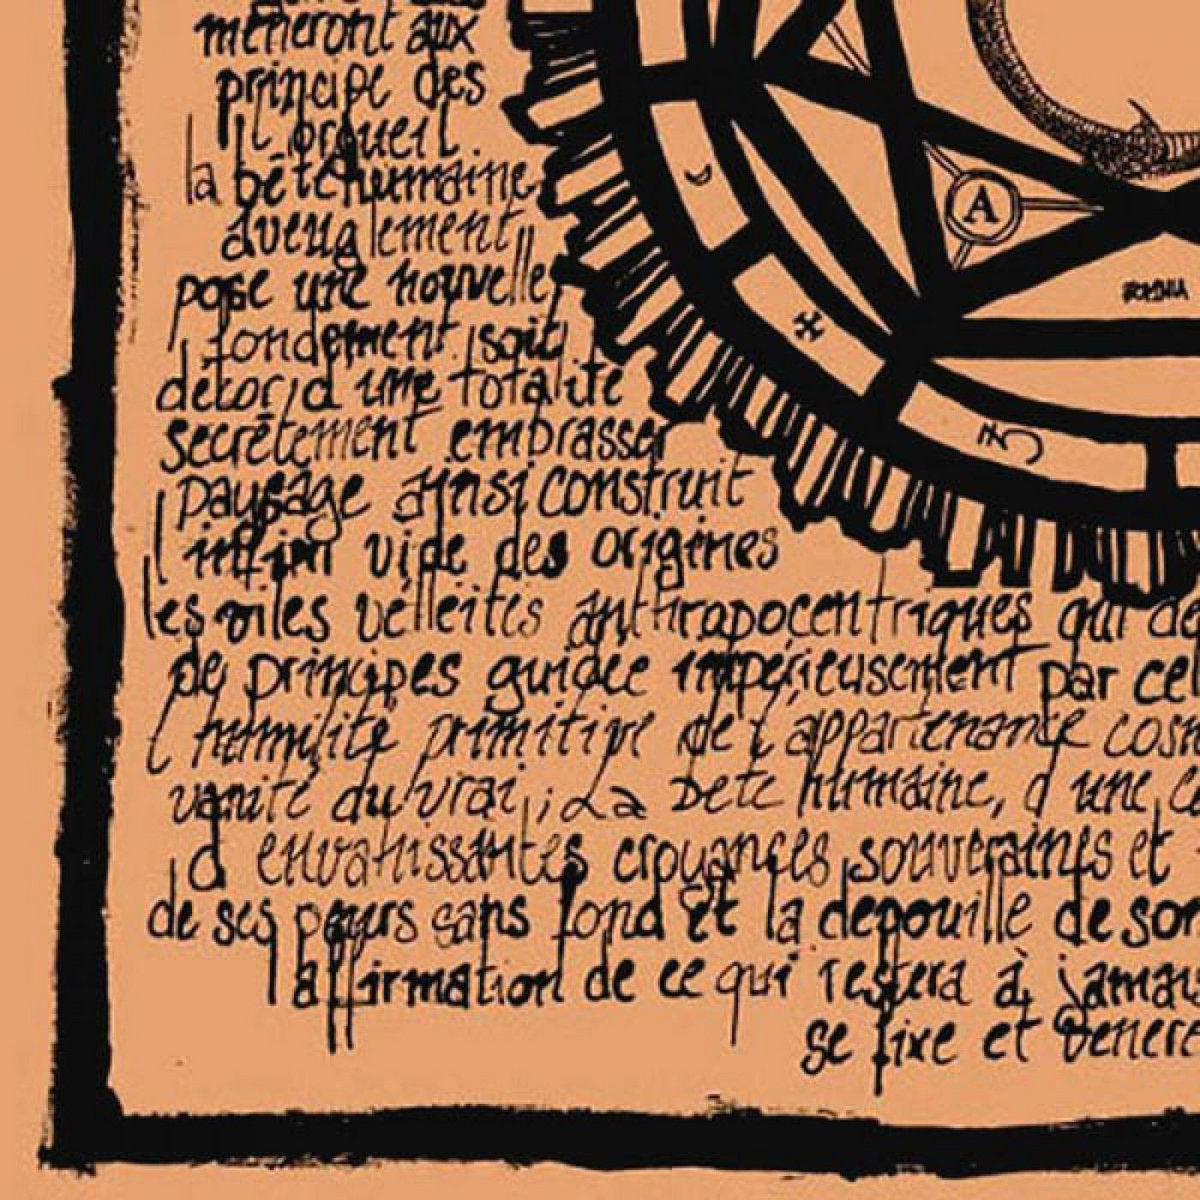 mèneront aux
principe des
l'orgueil
la bête humaine
aveuglement
pose une nouvelle
fondement soit
décor, d'une totalité
secrètement embrasser
paysage ainsi construit
l' vide des origines
les viles velléités anthropocentriques qui de
de principes guidée impérieusement par cel
l'humilité primitive de l'appartenance cosm
vanité du vrai ; La bete humaine, d'une c
d'envahissantes croyances souveraines et
de ses peurs sans fond et la dépouille de son
l'affirmation de ce qui restera à jamai
se fixe et vénère
A